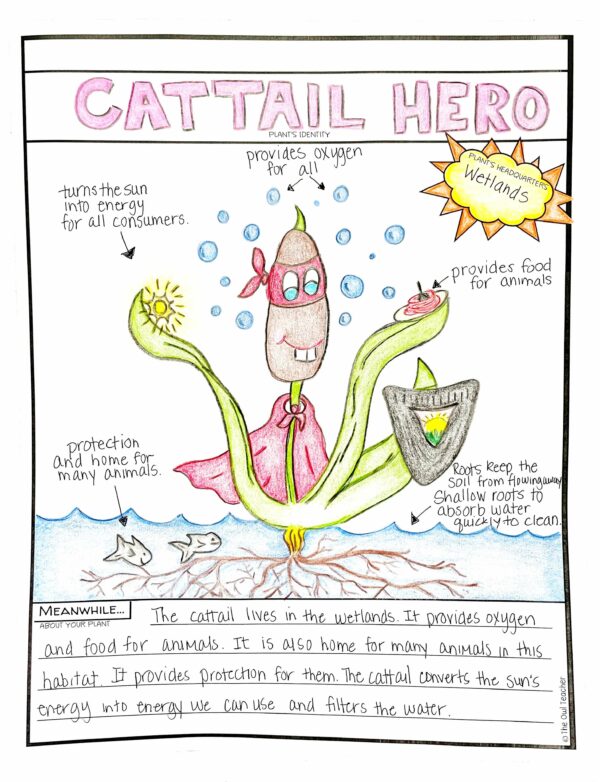 CATTAIL HERO
PLANT'S IDENTITY
PLANT'S HEADQUARTERS
Wetlands
provides oxygen
for all
turns the sun
into energy
for all consumers.
provides food
for animals
protection
and home for
many animals.
Roots keep the
soil from flowing away
Shallow roots to
absorb water
quickly to clean.
MEANWHILE...
ABOUT YOUR PLANT
The cattail lives in the wetlands. It provides oxygen
and food for animals. It is also home for many animals in this
habitat. It provides protection for them. The cattail converts the sun's
energy into energy we can use and filters the water.
©The Owl Teacher